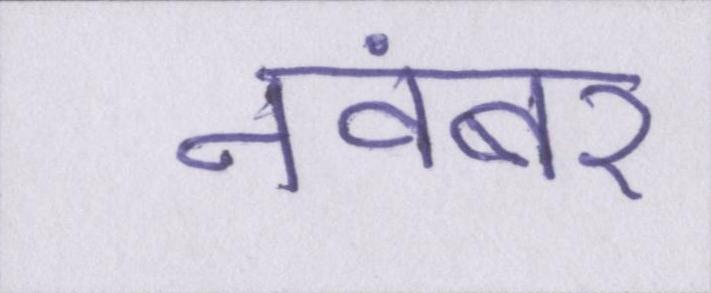 नवंबर